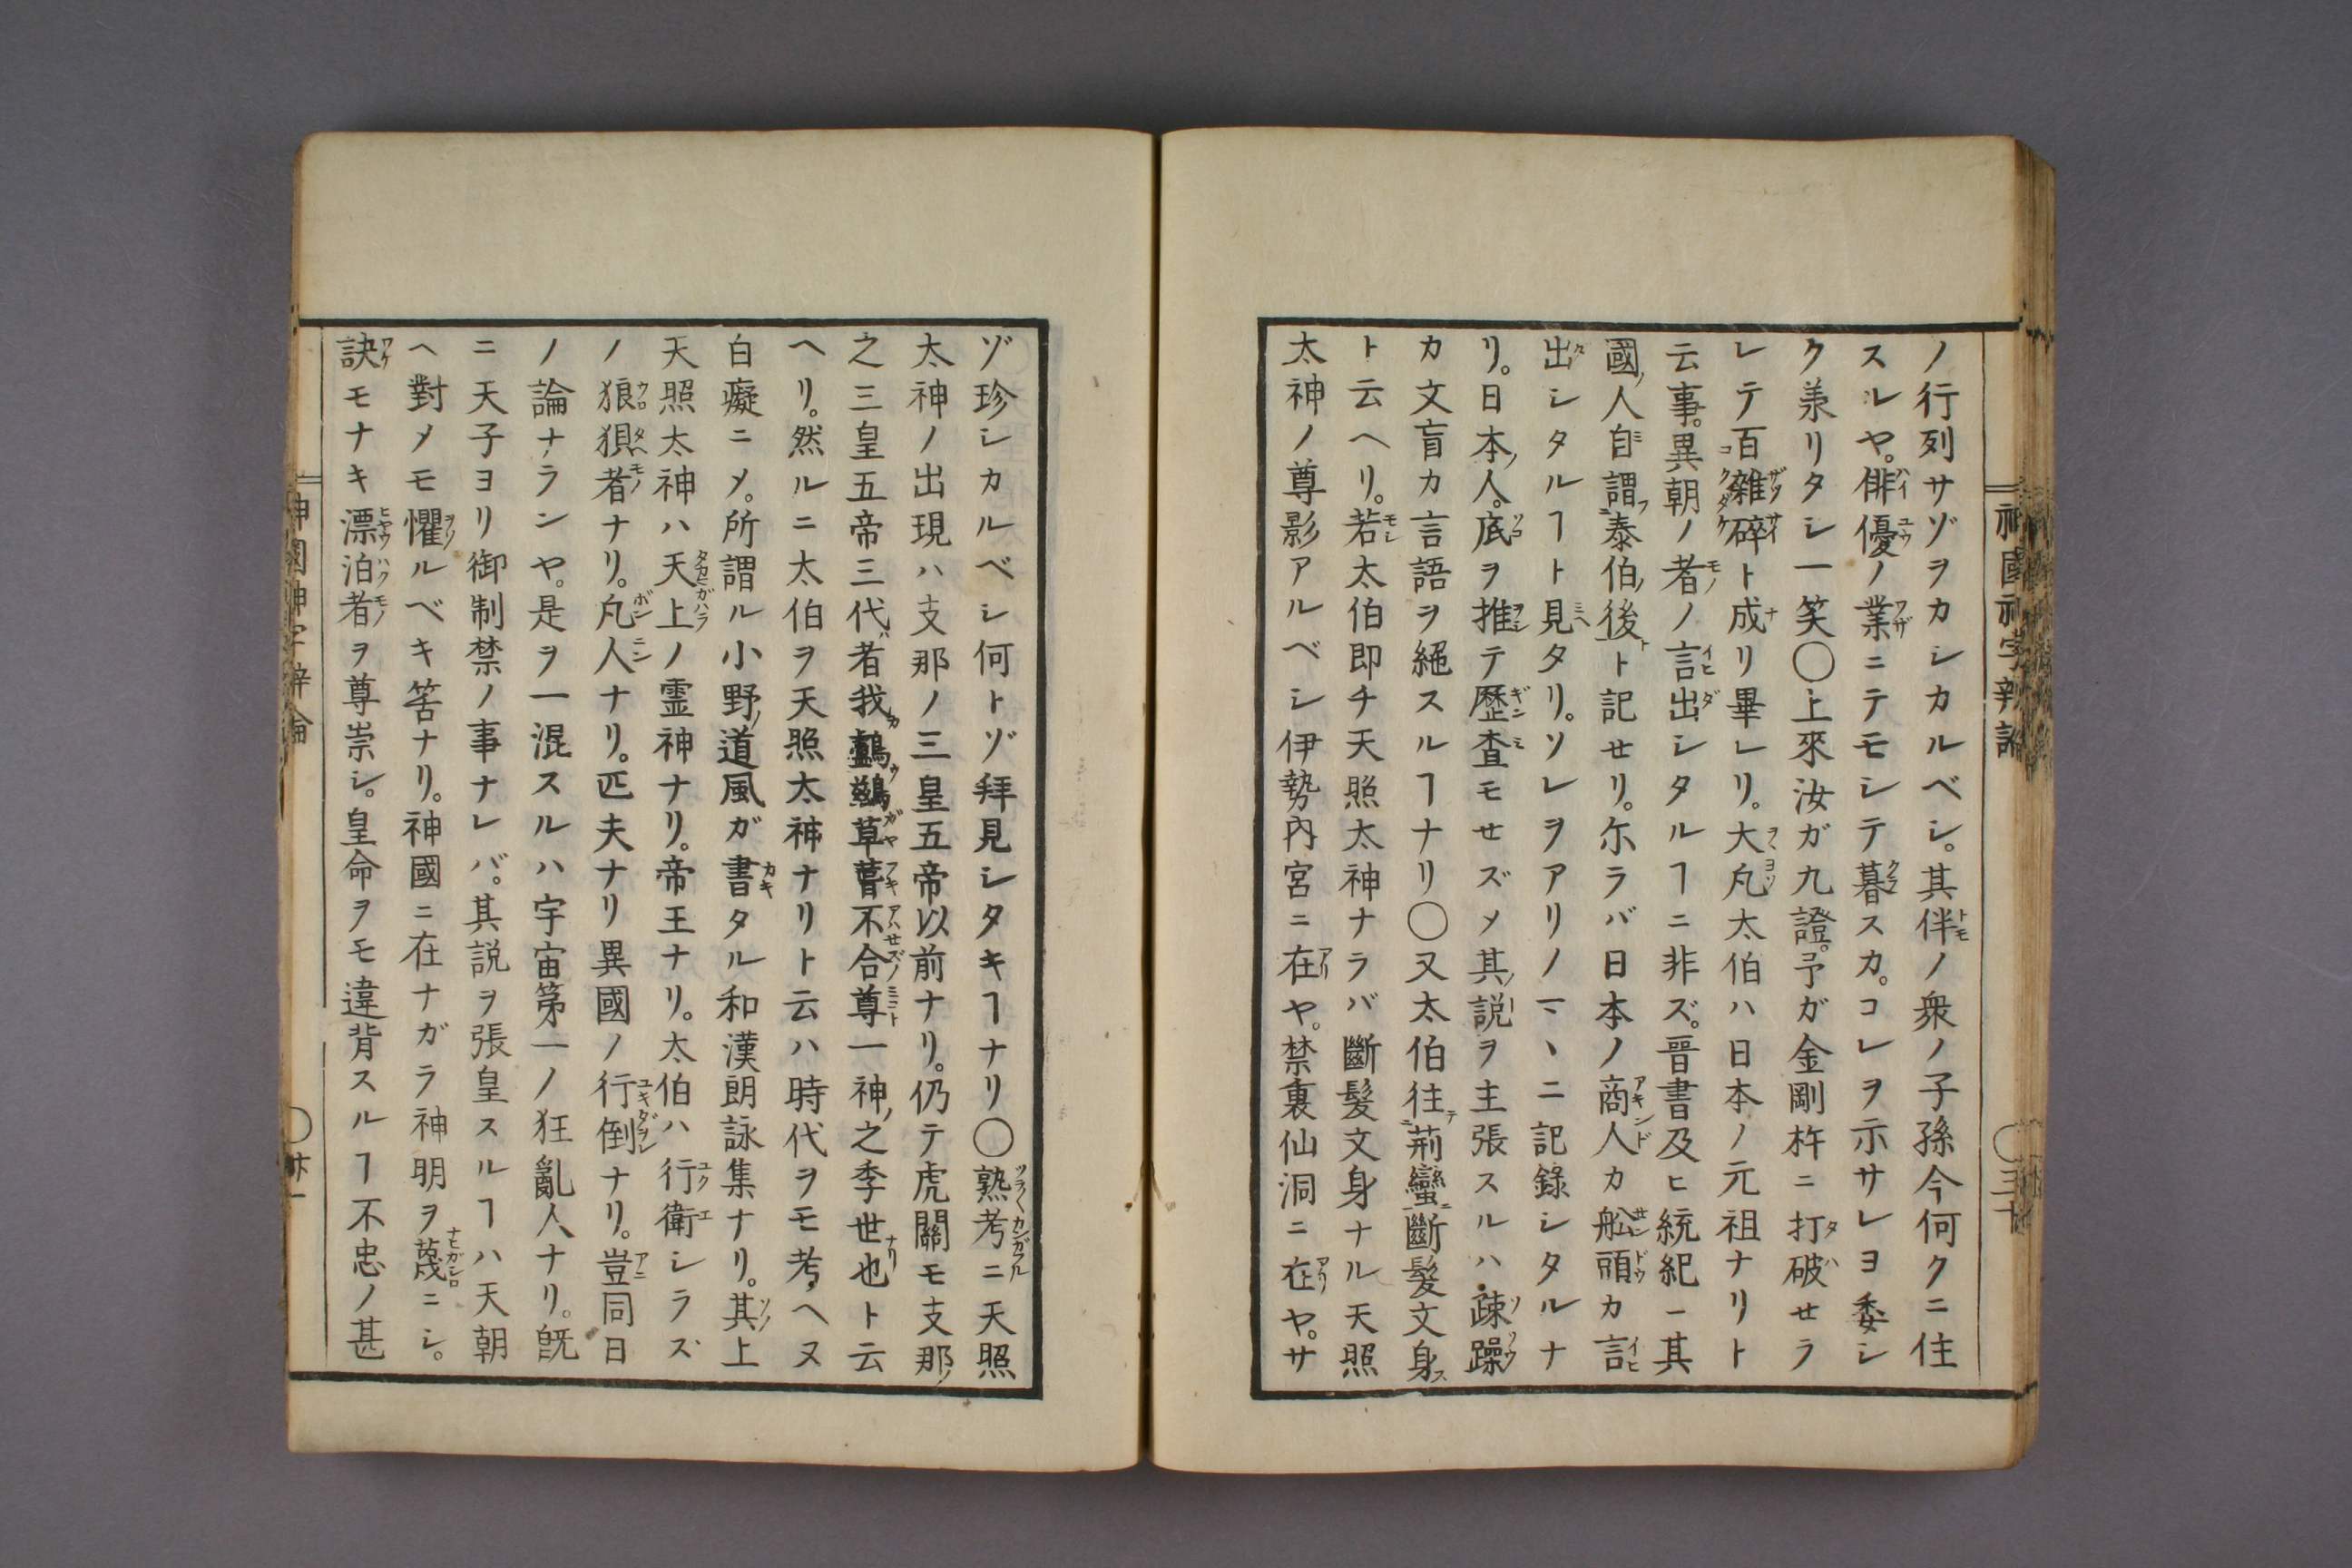 ノ行列サゾヲカシカルベシ。其伴ノ衆ノ子孫今何クニ住
スルヤ。俳優ノ業ニテモシテ暮スカ。コレヲ示サレヨ委シ
ク羕リタシ一笑〇上來汝ガ九證。予ガ金剛杵ニ打破セラ
レテ百雜碎ト成リ畢レリ。大凡太伯ハ日本ノ元祖ナリト
云事。異朝ノ者ノ言出シタルヿニ非ズ。晉書及ヒ統紀ニ其
國ノ人自謂フ泰伯ノ後ト記セリ。尓ラバ日本ノ商人カ舩頭カ言
出シタルヿト見タリ。ソレヲアリノマヽニ記錄シタルナ
リ。日本ノ人。底ヲ推テ歴査モセズメ其ノ説ヲ主張スルハ疎躁
カ文盲カ言語ヲ絕スルヿナリ〇又太伯往テ荊蠻ニ斷髮文身ス
ト云ヘリ。若太伯即チ天照太神ナラバ斷髮文身ナル天照
太神ノ尊影アルベシ伊勢內宮ニ在ヤ。禁裏仙洞ニ在ヤ。サ
神國神字辨論
〇三十
ゾ珍シカルベシ何トゾ拜見シタキヿナリ〇熟考ニ天照
太神ノ出現ハ支那ノ三皇五帝以前ナリ。仍テ虎關モ支那ノ
之三皇五帝三代ハ者我カ鸕鷀草葺不合尊一神ノ之季世也ト云
ヘリ。然ルニ太伯ヲ天照太神ナリト云ハ時代ヲモ考ヘヌ
白癡ニメ。所謂ル小野ノ道風ガ書タル和漢朗詠集ナリ。其上
天照太神ハ天上ノ霊神ナリ。帝王ナリ。太伯ハ行衛シラズ
ノ狼狽者ナリ。凡人ナリ。匹夫ナリ異國ノ行倒ナリ。豈同日
ノ論ナランヤ。是ヲ一混スルハ宇宙第一ノ狂亂人ナリ。既
ニ天子ヨリ御制禁ノ事ナレバ。其説ヲ張皇スルヿハ天朝
ヘ對メモ懼ルベキ筈ナリ。神國ニ在ナガラ神明ヲ蔑ニシ。
訣モナキ漂泊者ヲ尊崇シ。皇命ヲモ違背スルヿ不忠ノ甚
神國神字辨論
〇卅一